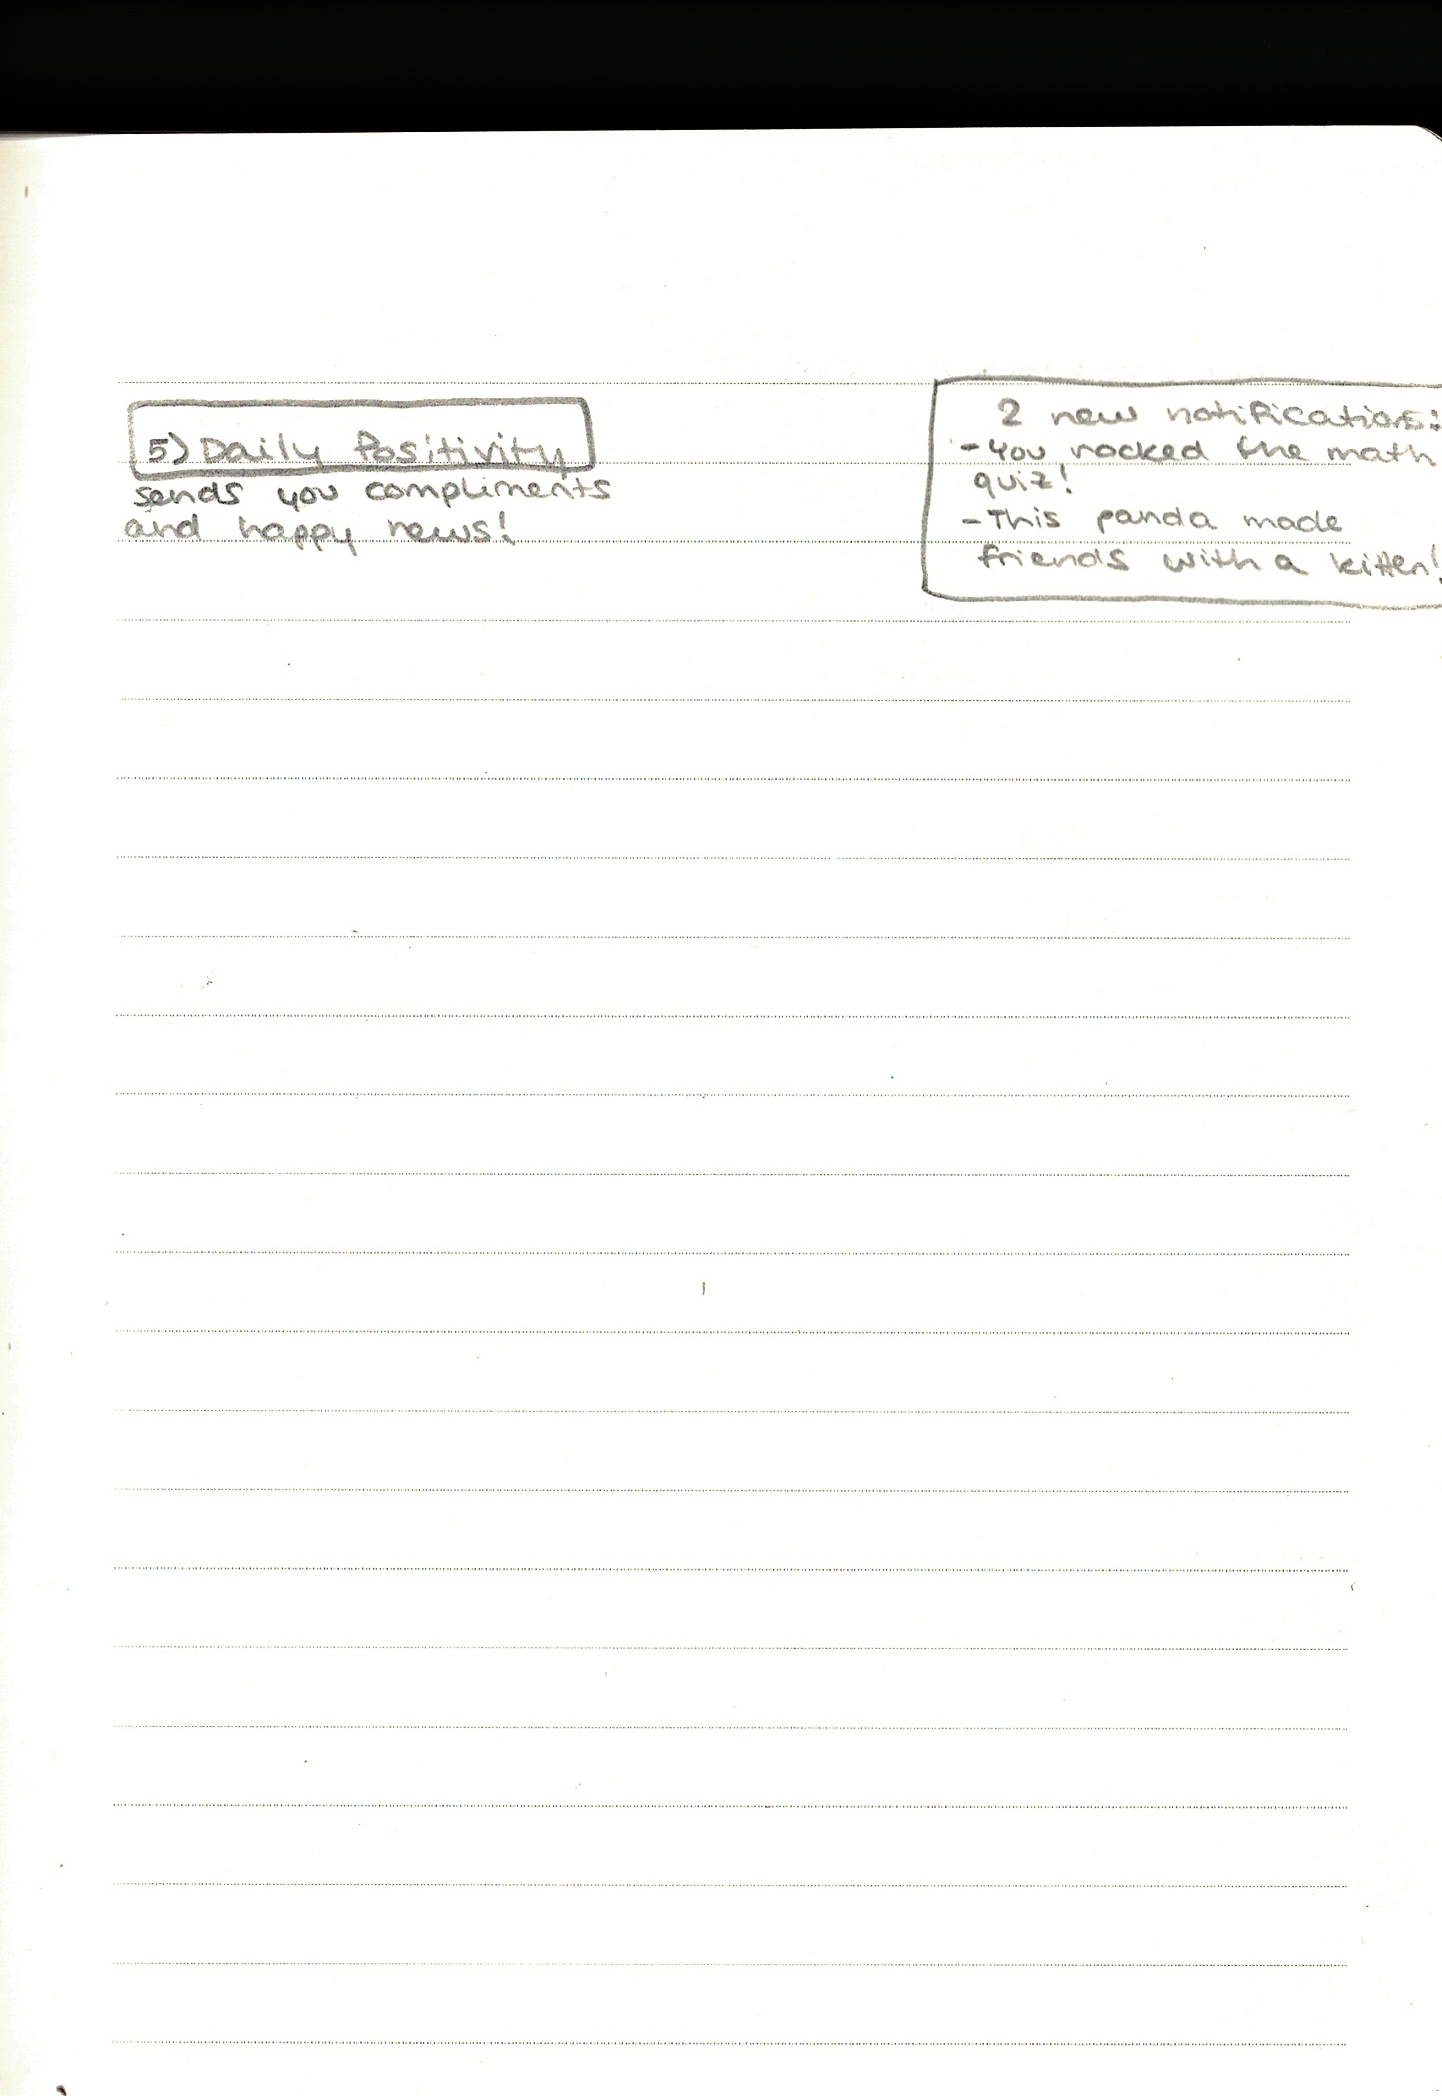 5) Daily Positivity
sends you compliments
and happy news!
2 new notifications:
- You rocked the math
quiz!
- This panda made
friends with a kitten!